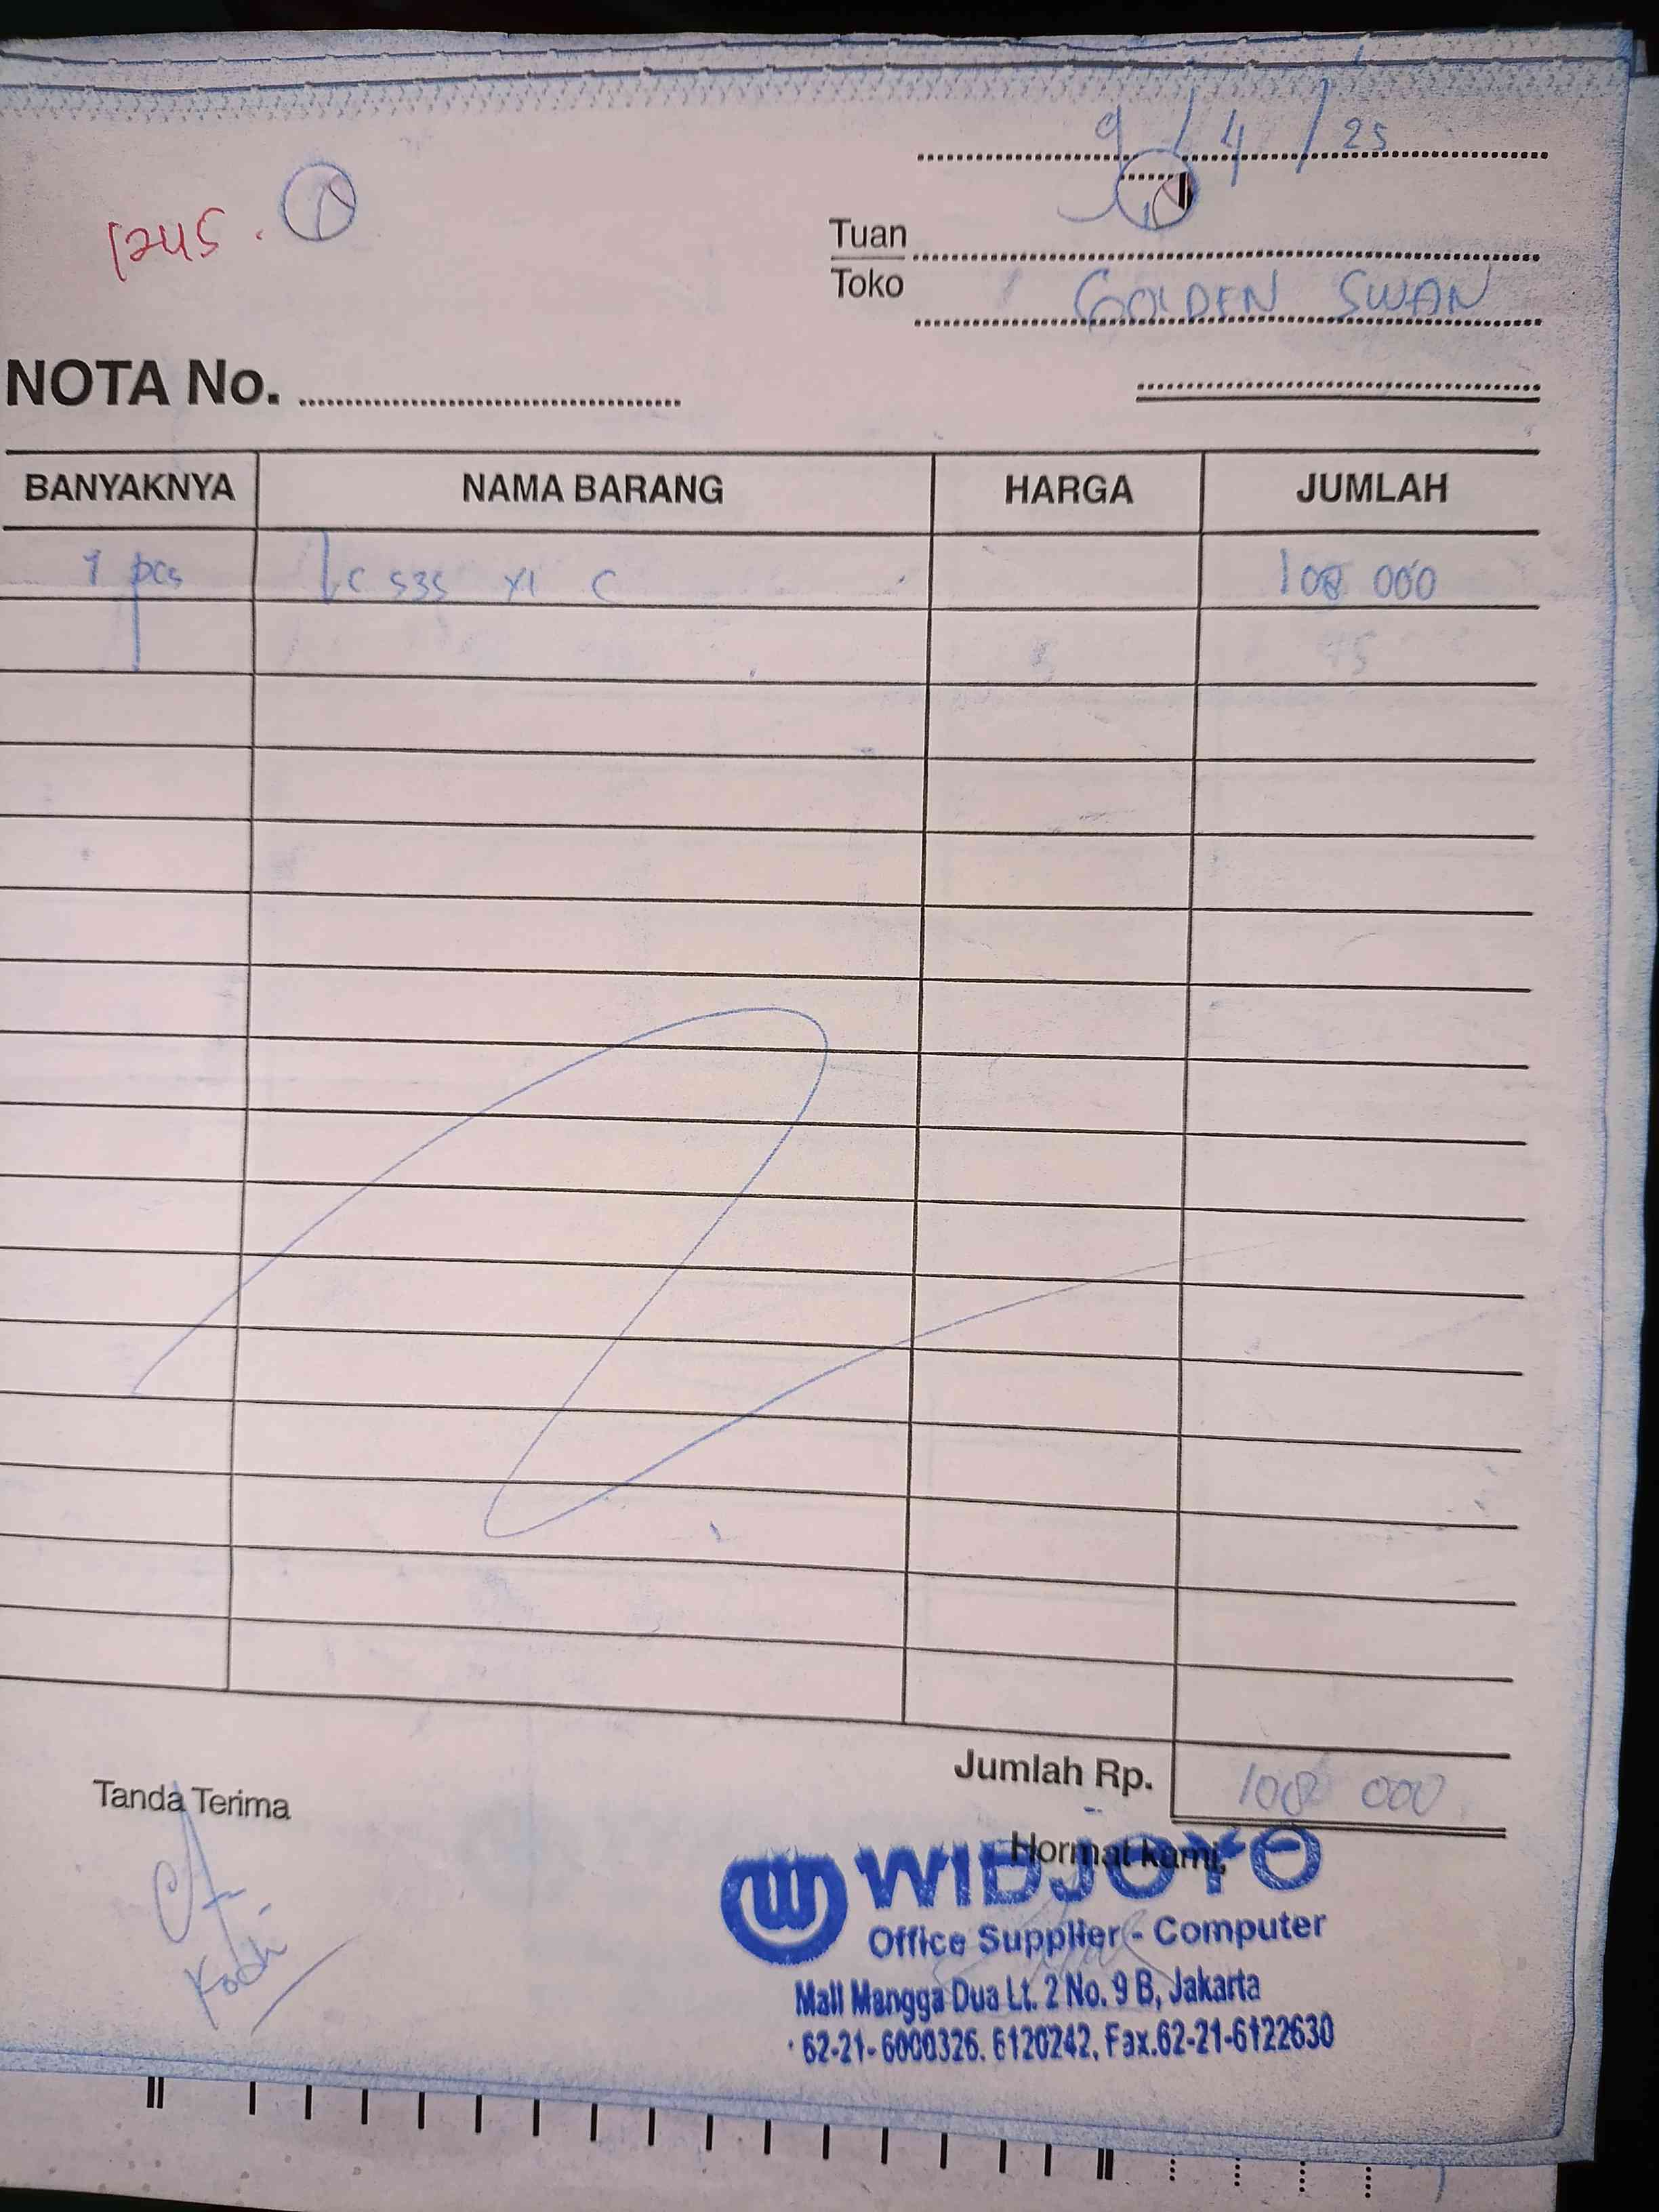 9 / 4 / 25
1245.
Tuan
Toko
GOLDEN SWAN
NOTA No.
BANYAKNYA NAMA BARANG HARGA JUMLAH
1 pcs Lc 535 XL C 108 000
Jumlah Rp. 108 000
Tanda Terima
Hormat kami,
WIDJOYO
Office Supplier - Computer
Mall Mangga Dua Lt. 2 No. 9 B, Jakarta
62-21-6000326. 6120242, Fax.62-21-6122630